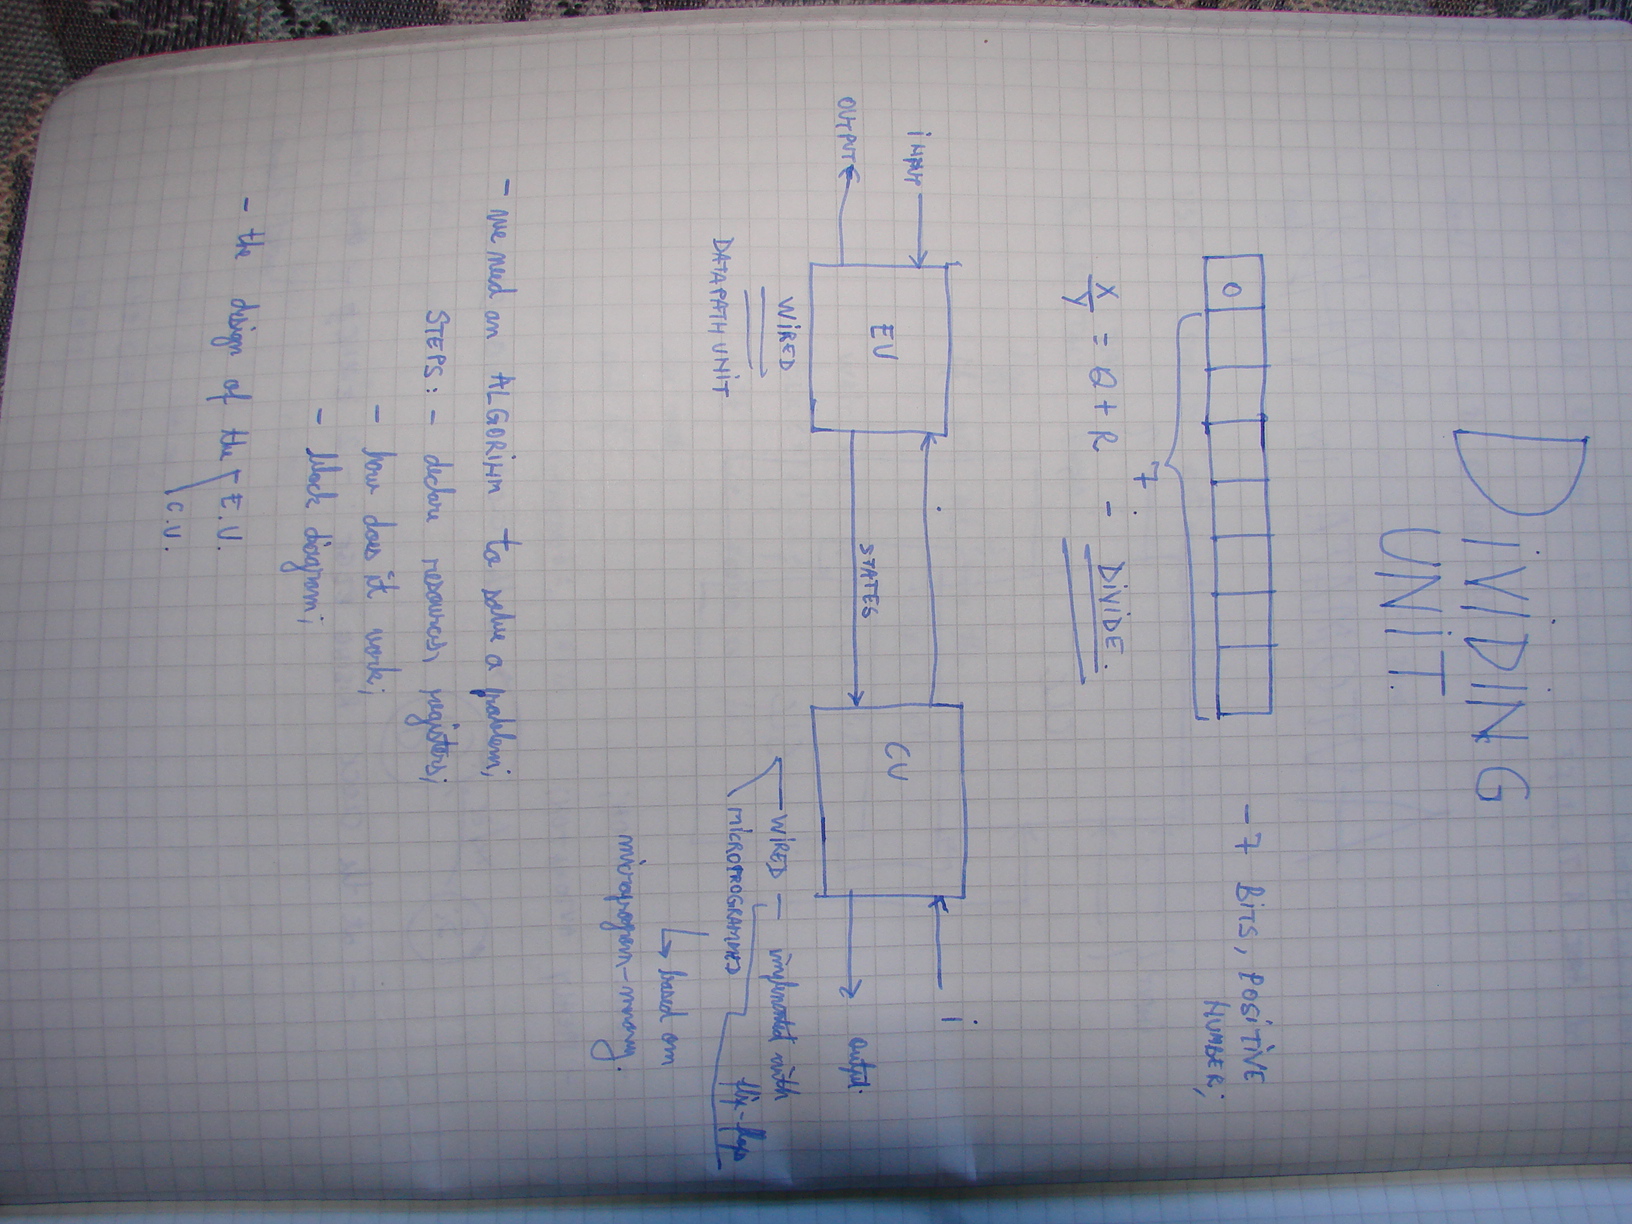 DiViDiNG
UNiT.
0
7
- 7 BiTS, POSiTiVE
NUMBER;
X/Y = Q + R - DiViDE.
iNPUT
OUTPUT
EU
STATES
CU
i
output.
WiRED
DATAPATH UNiT
WiRED - implemented with
flip-flops
MiCROPROGRAMMED
based on
microprogram-memory.
- we need an ALGORiHM to solve a problem;
STEPS: - declare resources, registers;
- how does it work;
- block diagram;
- the design of the E.U.
C.U.